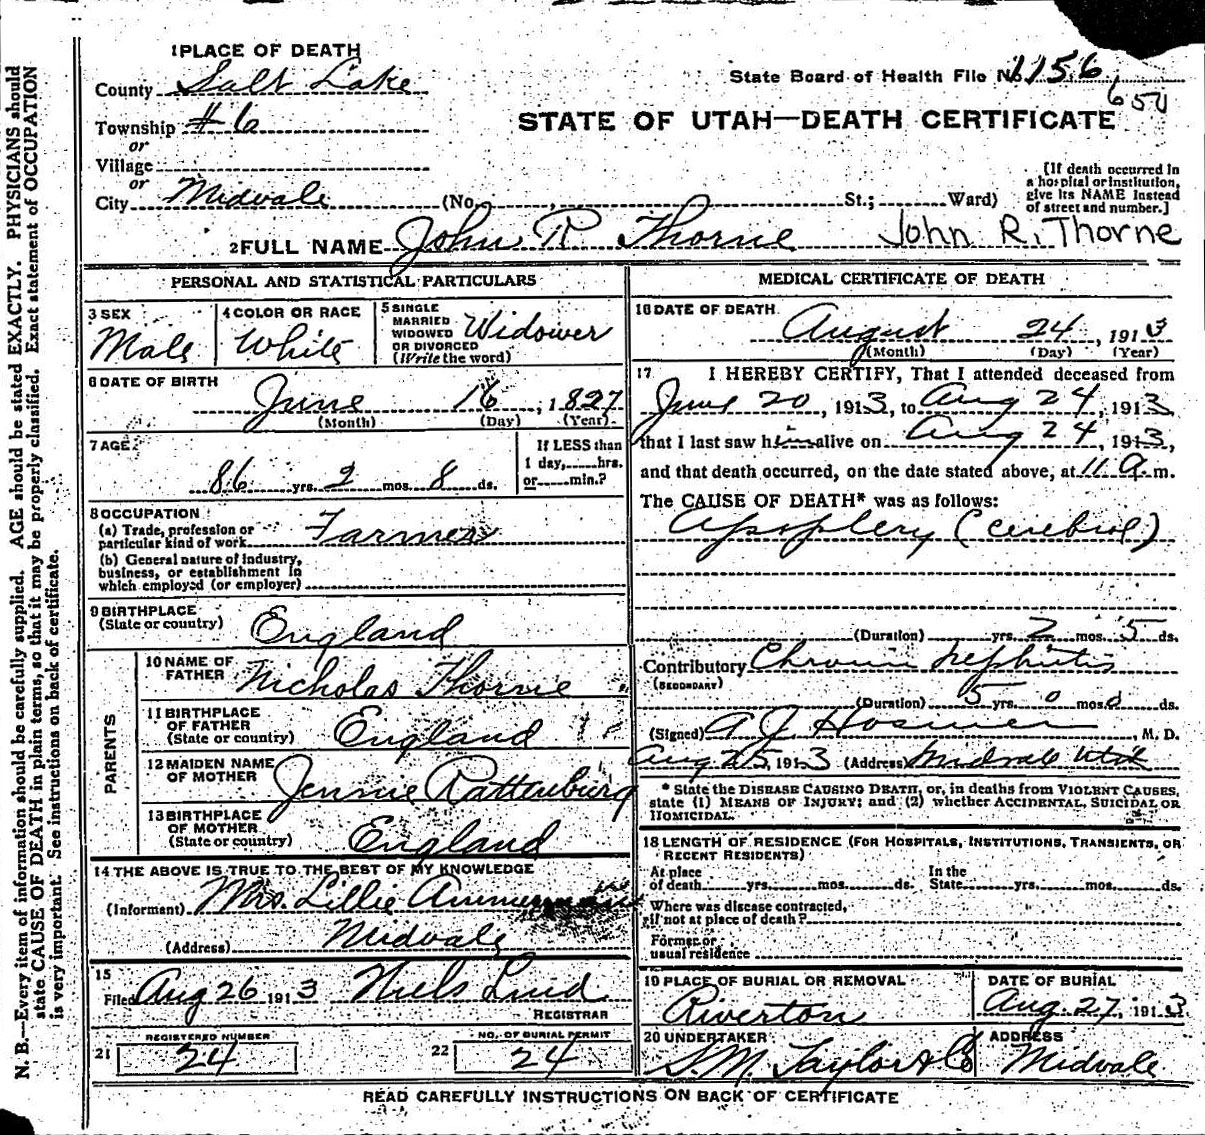 1 PLACE OF DEATH
County Salt Lake
Township #6
or
Village
or
City Midvale (No. , St.; Ward)
State Board of Health File No. 1156
STATE OF UTAH—DEATH CERTIFICATE
[If death occurred in
a hospital or institution,
give its NAME instead
of street and number.]
2 FULL NAME John R Thorne John R. Thorne
PERSONAL AND STATISTICAL PARTICULARS
3 SEX
Male
4 COLOR OR RACE
White
5 SINGLE
MARRIED
WIDOWED
OR DIVORCED
(Write the word)
Widower
6 DATE OF BIRTH
June 16, 1827
(Month) (Day) (Year)
7 AGE
86 yrs. 2 mos. 8 ds.
If LESS than
1 day, hrs.
or min.?
8 OCCUPATION
(a) Trade, profession or
particular kind of work Farmer
(b) General nature of industry,
business, or establishment in
which employed (or employer)
9 BIRTHPLACE
(State or country) England
PARENTS
10 NAME OF
FATHER Nicholas Thorne
11 BIRTHPLACE
OF FATHER
(State or country) England
12 MAIDEN NAME
OF MOTHER Jennie Rattenburg
13 BIRTHPLACE
OF MOTHER
(State or country) England
14 THE ABOVE IS TRUE TO THE BEST OF MY KNOWLEDGE
(Informant) Mrs. Lillie
(Address) Midvale
15
Filed Aug 26 1913 Niels Lind
REGISTRAR
REGISTERED NUMBER
21 24
NO. OF BURIAL PERMIT
22 24
MEDICAL CERTIFICATE OF DEATH
16 DATE OF DEATH
August 24, 1913
(Month) (Day) (Year)
17 I HEREBY CERTIFY, That I attended deceased from
June 20, 1913, to Aug 24, 1913
that I last saw him alive on Aug 24, 1913,
and that death occurred, on the date stated above, at 11 a. m.
The CAUSE OF DEATH* was as follows:
Apoplexy (cerebral)
(Duration) yrs. 2 mos. 5 ds.
Contributory Chronic Nephritis
(SECONDARY)
(Duration) 5 yrs. 0 mos. 0 ds.
(Signed) A J Hosmer, M. D.
Aug 25, 1913 (Address) Midvale Utah
* State the DISEASE CAUSING DEATH, or, in deaths from VIOLENT CAUSES,
state (1) MEANS OF INJURY; and (2) whether ACCIDENTAL, SUICIDAL OR
HOMICIDAL.
18 LENGTH OF RESIDENCE (FOR HOSPITALS, INSTITUTIONS, TRANSIENTS, OR
RECENT RESIDENTS)
At place In the
of death yrs. mos. ds. State yrs. mos. ds.
Where was disease contracted,
if not at place of death?
Former or
usual residence
19 PLACE OF BURIAL OR REMOVAL
Riverton
DATE OF BURIAL
Aug. 27, 1913
20 UNDERTAKER
S. M. Taylor & Co
ADDRESS
Midvale
READ CAREFULLY INSTRUCTIONS ON BACK OF CERTIFICATE
N. B.—Every item of information should be carefully supplied. AGE should be stated EXACTLY. PHYSICIANS should
state CAUSE OF DEATH in plain terms, so that it may be properly classified. Exact statement of OCCUPATION
is very important. See instructions on back of certificate.